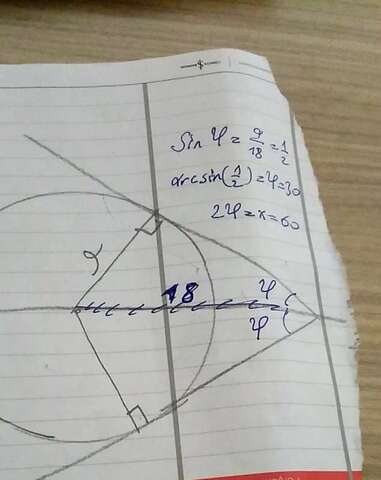 $
Sin φ = 9/18 = 1/2
arcsin(1/2) = φ = 30
2φ = x = 60
18
φ
φ